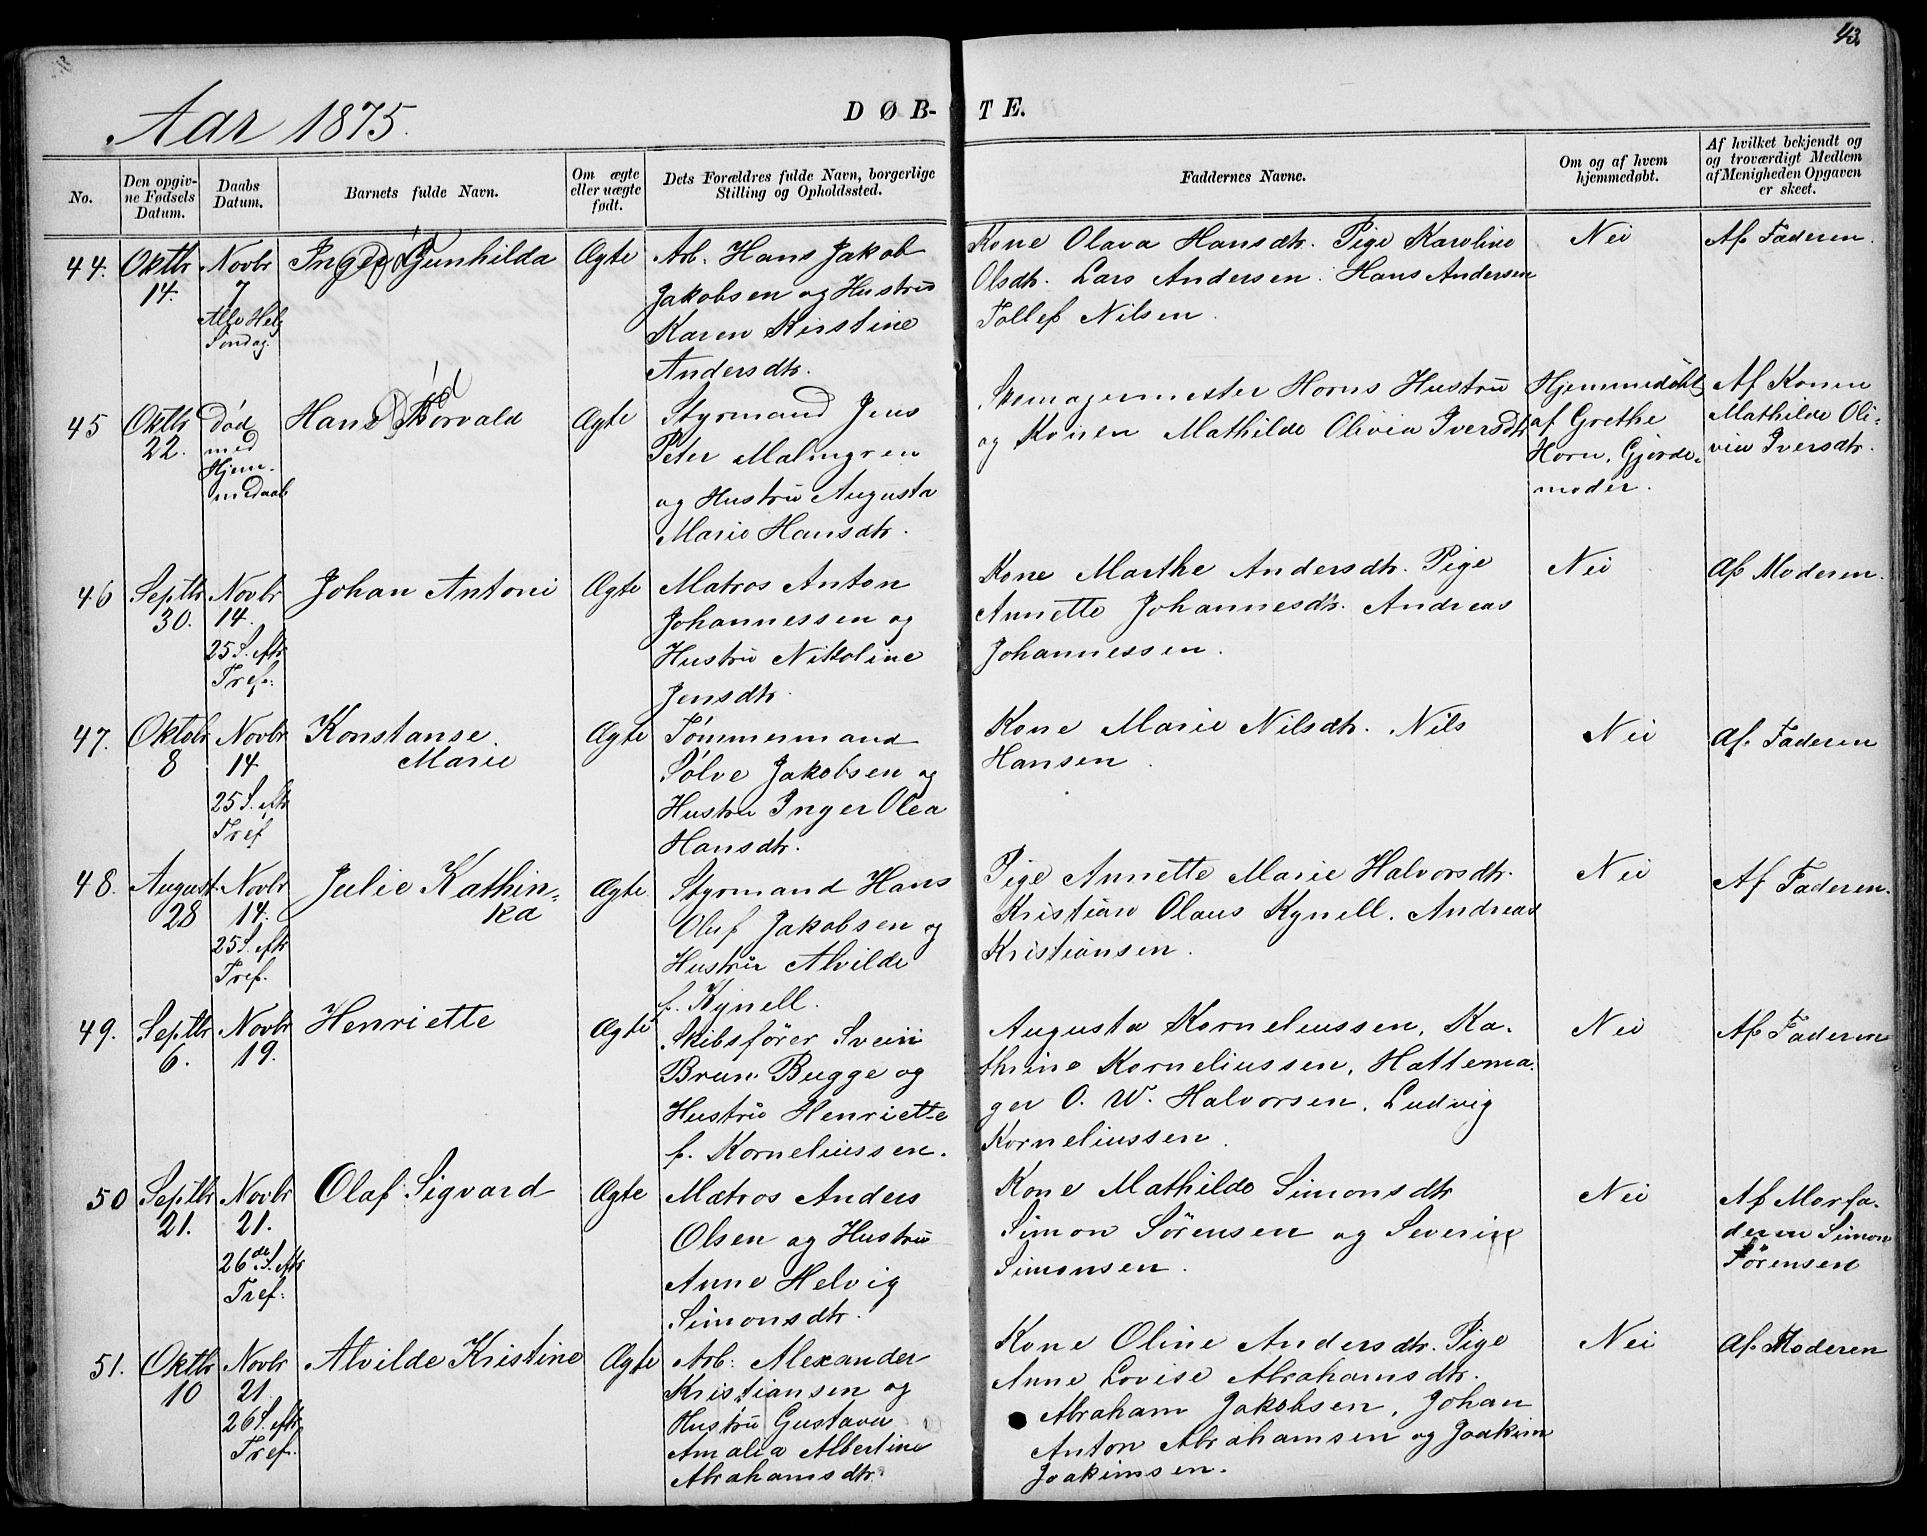 43.
Aar 1875.
DØB-TE.
No.
Den opgivne Fødsels Datum.
Daabs Datum.
Barnets fulde Navn.
Om ægte eller uægte født.
Dets Forældres fulde Navn, borgerlige Stilling og Opholdssted.
Faddernes Navne.
Om og af hvem hjemmedøbt.
Af hvilket bekjendt og og troværdigt Medlem af Menigheden Opgaven er skeet.
44.
Oktbr
14.
Novbr
7
Alle Helg
Søndag.
Inger Gunhilda
Ægte
Arb. Hans Jakob
Jakobsen og Hustru
Karen Kirstine
Andersdtr.
Kone Olava Hansdtr. Pige Karoline
Olsdtr. Lars Andersen. Hans Andersen
Tollef Nilsen.
Nei
Af Faderen.
45
Oktbr
22.
død
med
Hjem-
medaab
Hans Thorvald
død
Ægte
Styrmand Jens
Peter Malmgren
og Hustru Augusta
Marie Hansdtr.
Skomagermester Horns Hustru
og Konen Mathilde Olivia Iversdtr
Hjemmedøbt
af Grethe
Horn, Gjorde-
moder.
Af Konen
Mathilde Oli-
via Iversdtr.
46
Septbr
30.
Novbr
14.
25 S. eftr
Tref.
Johan Antoni
Ægte
Matros Anton
Johannessen og
Hustru Nikoline
Jensdtr.
Kone Marthe Andersdtr. Pige
Annette Johannesdtr. Andreas
Johannessen.
Nei
Af Moderen.
47.
Oktobr
8
Novbr
14
25 S. eftr
Tref
Konstanse
Marie
Ægte
Tømmermand
Sølve Jakobsen og
Hustru Inger Olea
Hansdtr.
Kone Marie Nilsdtr. Nils
Hansen.
Nei
Af Faderen
48.
August
28
Novbr
14.
25 S. eftr
Tref.
Julie Kathin-
ka
Ægte
Styrmand Hans
Oluf Jakobsen og
Hustru Alvilde
f. Kynell.
Pige Annette Marie Halvorsdtr.
Kristian Olaus Kynell. Andreas
Kristiansen.
Nei
Af Faderen.
49.
Septbr
6.
Novbr
19.
Henriette
Ægte
Skibsfører Svein
Brun Bugge og
Hustru Henriette
f. Korneliussen.
Augusta Korneliussen, Ka-
thrine Korneliussen, Hattema-
ger O. W. Halvorsen, Ludvig
Korneliussen.
Nei
Af Faderen
50
Septbr
21.
Novbr
21.
26de S. eftr
Tref.
Olaf Sigvard
Ægte
Matros Anders
Olsen og Hustru
Anne Helvig
Simonsdtr.
Kone Mathilde Simonsdtr
Simon Sørensen og Severin
Simonsen.
Nei
Af Morfa-
deren Simon
Sørensen
51.
Oktbr
10
Novbr
21.
26 S. eftr
Tref.
Alvilde Kristine
Ægte
Arb. Alexander
Kristiansen og
Hustru Gustava
Amalia Albertine
Abrahamsdtr.
Kone Oline Andersdtr. Pige
Anne Lovise Abrahamsdtr.
Abraham Jakobsen, Johan
Anton Abrahamsen og Joakim
Joakimsen.
Nei
Af Moderen